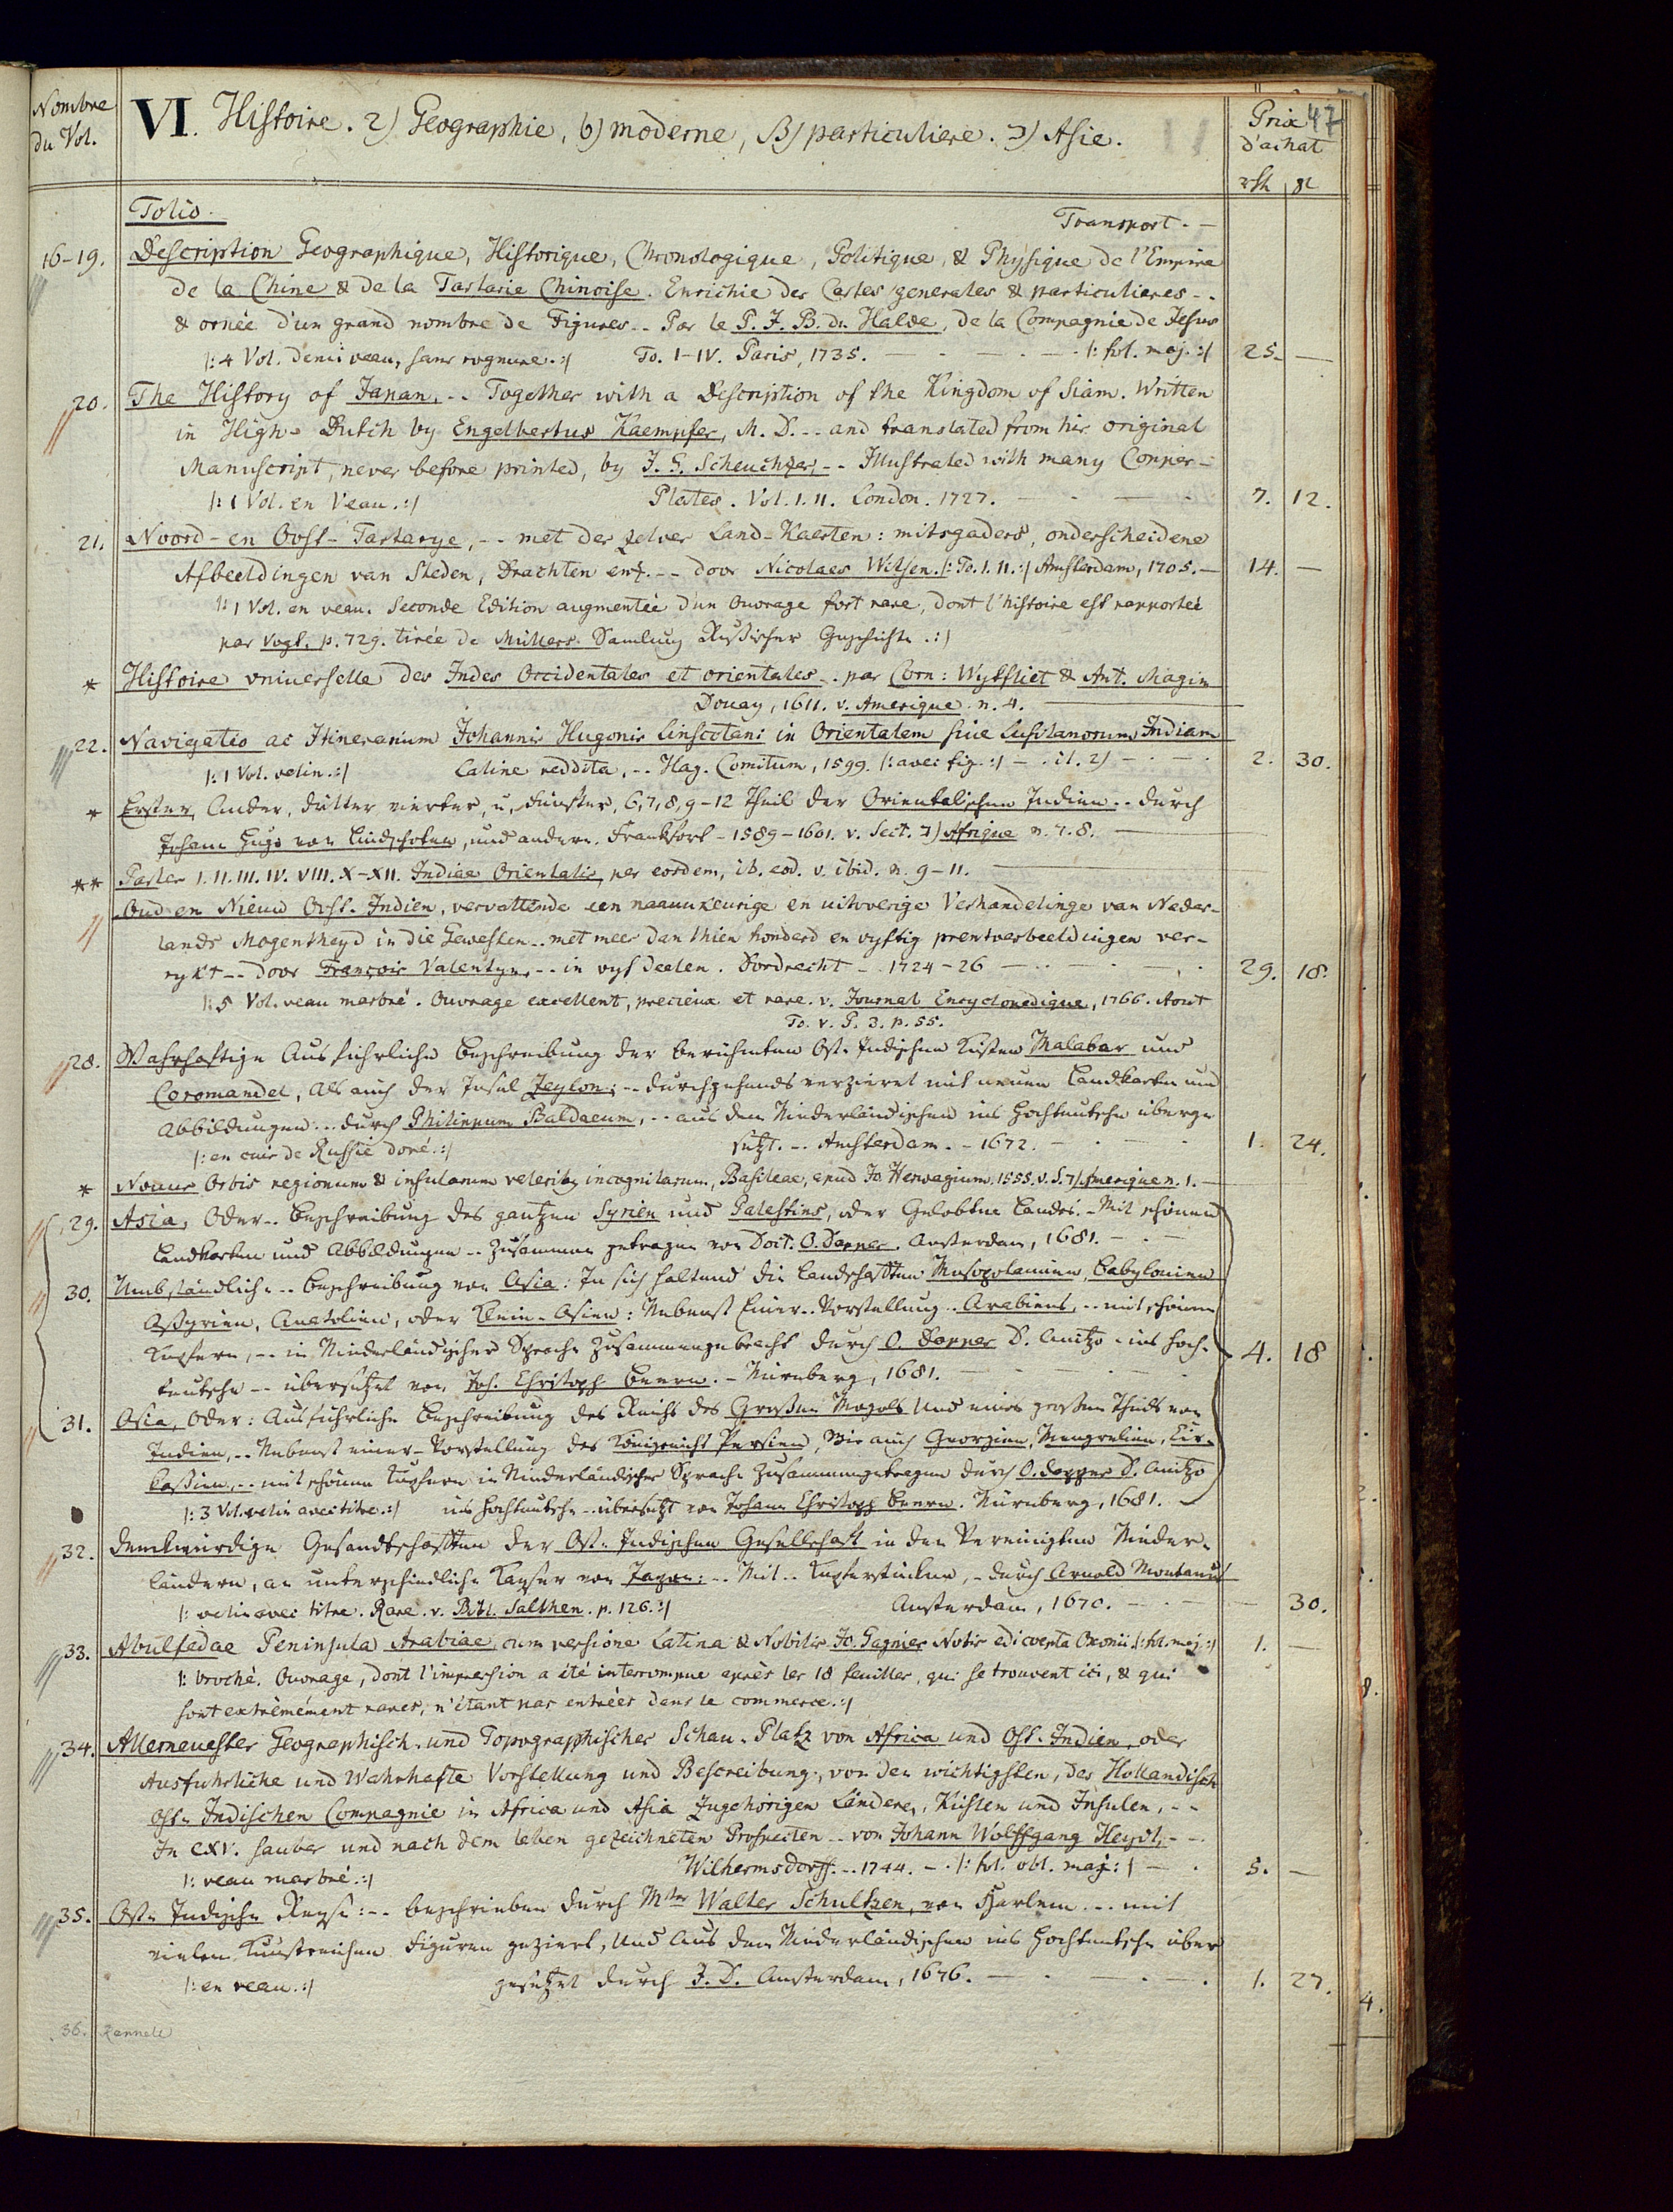 Nombre du Vol.
VI. Histoire. 2) Geographie, b) moderne, β) particuliere. ↄ) Asie.
Prix d'achat
47
Folio.
Transport. —
16-19. Description Geographique, Historique, Chronologique, Politique, & Physique de l'Empire
de la Chine & de la Tartarie Chinoise. Enrichie des Cartes generales & particulieres --
& ornée d'un grand nombre de Figures -- Par le P. J. B. du Halde, de la Compagnie de Jesus
|: 4 Vol. demi veau, sans rognure. :| To. I-IV. Paris, 1735. — |: fol. maj. :| 25. —
20. The History of Japan, -- Together with a Description of the Kingdom of Siam. Written
in High-Dutch by Engelbertus Kaempfer, M. D. -- and translated from his original
Manuscript, never before printed, by J. G. Scheuchzer, -- Illustrated with many Copper-
|: 1 Vol. en Veau. :| Plates. Vol. I. II. London. 1727. — 7. 12.
21. Noord- en Oost-Tartarye, -- met der zelver Land-Kaerten: mitsgaders, onderscheidene
Afbeeldingen van Steden, Drachten enz. -- door Nicolaes Witsen. |: To. I. II. :| Amsterdam, 1705. — 14. —
|: 1 Vol. en veau. Seconde Edition augmentée d'un Ouvrage fort rare, dont l'histoire est rapportée
par Vogt. p. 729. tirée de Müllers Samlung Rußischer Geschichte. :|
* Histoire universelle des Indes Occidentales et orientales -. par Corn: Wytfliet & Ant. Magin
Douay, 1611. v. Amerique. n. 4. —
22. Navigatio ac Itinerarium Johannis Hugonis Linscotani in Orientalem sive Lusitanorum Indiam
|: 1 Vol. velin. :| Latine reddita, -- Hag. Comitum, 1599. |: avec fig. :| — 2. 30.
* Erster, Ander, dritter vierter, u. fünfter, 6, 7, 8, 9-12 Theil der Orientalischen Indien -- durch
Johann Hugo von Lindschoten, und andern. Frankfort - 1589-1601. v. Sect. ℸ) Afrique n. 7. 8. —
** Partes I. II. III. IV. VIII. X-XII. Indiae Orientalis, per eosdem, ib. eod. v. ibid. n. 9-11. —
Oud en Nieuw Oost-Indien, vervattende een naaukeurige en uitvoerige Verhandelinge van Neder-
lands Mogentheyd in die Gewesten -- met meer dan thien honderd en vyftig prentverbeeldingen ver-
rykt -- door François Valentyn, -- in vyf deelen. Dordrecht - 1724-26 — 29. 18.
|: 5 Vol. veau marbré. Ouvrage excellent, precieux et rare. v. Journal Encyclopedique, 1766. Aout
To. V. P. 3. p. 55.
28. Wahrhaftige Ausführliche Beschreibung der Berühmten Ost-Indischen Küsten Malabar und
Coromandel, Als auch der Insel Zeylon: -- durchgehends verzieret mit neuen Landkarten und
Abbildungen -- durch Philippum Baldaeum, -- aus dem Niederländischen ins Hochteutsche überge-
|: en cuir de Russie doré. :| setzt. -- Amsterdam. - 1672. — 1. 24.
* Novus Orbis regionum & insularum veteribus incognitarum, Basileae, apud Jo. Hervagium. 1555. v. S. ℸ) Amerique n. 1. —
29. Asia, Oder -- Beschreibung des gantzen Syrien und Palestins, oder Gelobten Landes. - Mit schönen
Landkarten und Abbildungen -- Zusammen getragen von Doct. O. Dapper. Amsterdam, 1681. —
30. Umbständliche -- Beschreibung von Asia: In sich haltend die Landschafften Mesopotamien, Babylonien
Assyrien, Anatolien, oder Klein-Asien: Nebenst Einer -- Vorstellung -- Arabiens, -- mit schönen
Kupfern, -- in Niederländischer Sprache Zusammengebracht durch O. Dapper D. Anitzo - ins Hoch-
teutsche -- übersetzet von Joh. Christoph Beern. - Nürnberg, 1681. 4. 18
31. Asia, Oder: Ausführliche Beschreibung des Reichs des Grossen Mogols Und eines grossen Theils von
Indien, -- Nebenst einer - Vorstellung des Königreichs Persien, Wie auch Georgien, Mengrelien, Cir-
kassien, -- mit schönen Kupfern in Niederländischer Sprache Zusammengetragen durch O. Dapper D. Anitzo
|: 3 Vol. velin avec titre. :| ins Hochteutsche - übersetzt von Johann Christoph Beern. Nürnberg, 1681. —
32. Denckwürdige Gesandtschafften der Ost-Indischen Gesellschaft in den Vereinigten Nieder-
ländern, an unterschiedliche Kayser von Japan: -- Mit -- Kupferstücken, - durch Arnold Montanus
|: velin avec titre. Rare. v. Bibl. Salthen. p. 126. :| Amsterdam, 1670. — 30.
33. Abulfedae Peninsula Arabiae, cum versione Latina & Nobilis Jo. Gagnier Notis edi coepta Oxonii. |: fol. maj. :| 1. —
|: broché. Ouvrage, dont l'impression a été interrompue après les 18 feuilles, qui se trouvent ici, & qui
sont extrêmement rares, n'étant pas entrées dans le commerce. :|
34. Allerneuester Geographisch- und Topographischer Schau-Platz von Africa und Ost-Indien, oder
Ausfuhrliche und Wahrhafte Vorstellung und Bescreibung, von den wichtigsten, der Hollandisch
Ost-Indischen Compagnie in Africa und Asia Zugehörigen Ländere, Küsten und Insulen, --
In CXV. sauber und nach dem leben gezeichneten Prospecten -- von Johann Wolffgang Heydt, --
|: veau marbré. :| Wilhermsdorff. -- 1744. - |: fol. obl. maj: | — 5. —
35. Ost-Indische Reyse: -- Beschrieben durch Mstr Walter Schultzen, von Harlem -- mit
vielen Kunstreichen Figuren gezieret, Und Aus dem Niederländischen ins Hochteutsche über
|: en veau. :| gesetzet durch J. D. Amsterdam, 1676. — 1. 27.
36. Rennell